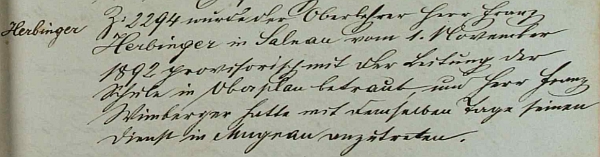 Herbinger
Z: 2294 wurde der Oberlehrer Herr Franz
Herbinger in Salnau vom 1. November
1892 provisorisch mit der Leitung der
Schule in Oberplan betraut, und Herr Franz
Wimberger hatte mit demselben Tage seinen
Dienst in Mugrau anzutreten.